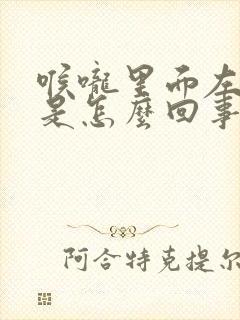 喉嚨里面左
是怎麼回事
阿合特克提尔